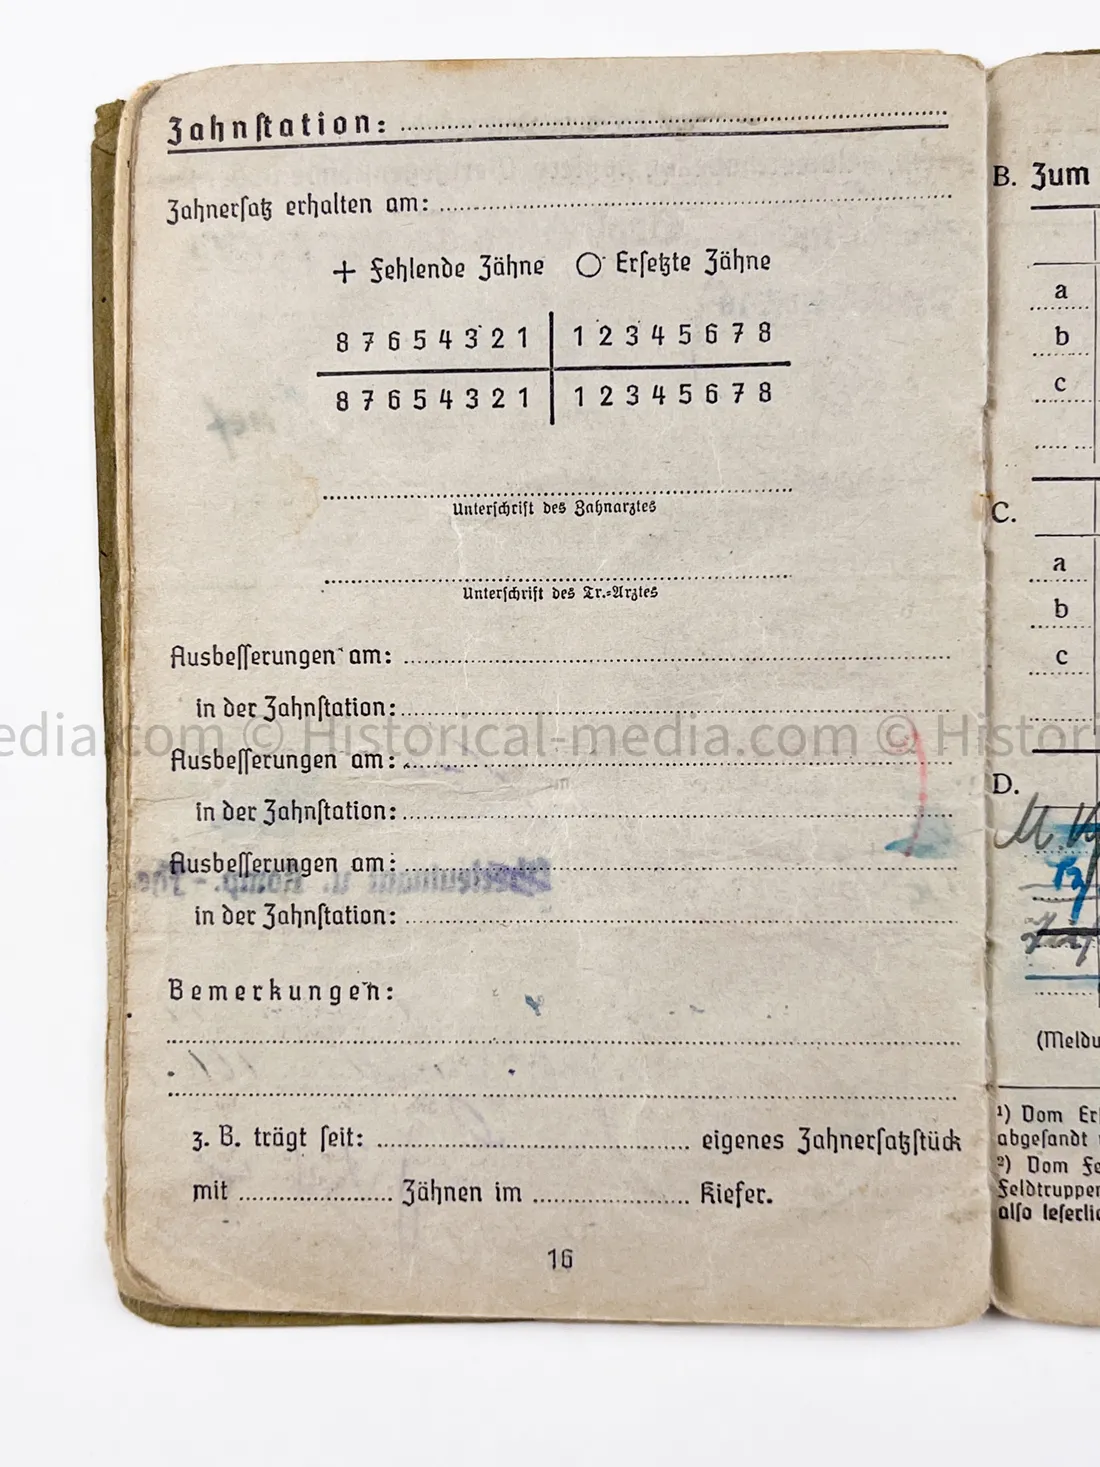 Zahnstation:
Zahnersatz erhalten am:
+ Fehlende Zähne ○ Ersetzte Zähne
8 7 6 5 4 3 2 1 | 1 2 3 4 5 6 7 8
8 7 6 5 4 3 2 1 | 1 2 3 4 5 6 7 8
Unterschrift des Zahnarztes
Unterschrift des Tr.-Arztes
Ausbesserungen am:
in der Zahnstation:
edia.com © Historical-media.com © Histori
Ausbesserungen am:
in der Zahnstation:
Ausbesserungen am:
in der Zahnstation:
Bemerkungen:
z. B. trägt seit: eigenes Zahnersatzstück
mit Zähnen im Kiefer.
16
B. Zum
a
b
c
C.
a
b
c
D.
(Meldu
¹) Vom Er
abgesandt
²) Vom Fe
Feldtruppen
also leserlic